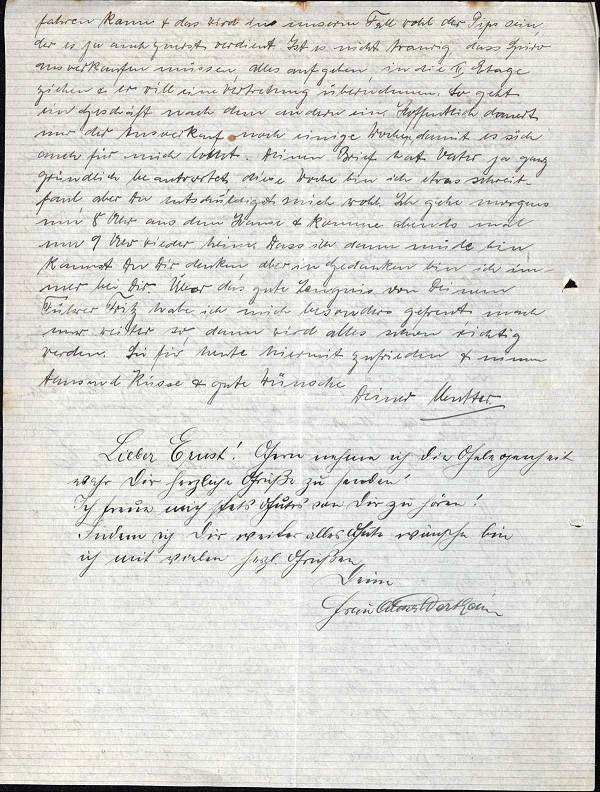 fahren kann & das wird in unserem Fall wohl der Pips sein,
der es ja auch zuerst verdient. Ist es nicht traurig, dass Spiro
ausverkaufen müssen, alles aufgeben, in die II Etage
ziehen & er will eine Vertretung übernehmen. So geht
ein Geschäft nach dem andern ein. Hoffentlich dauert
nur der Ausverkauf noch einige Wochen, damit es sich
auch für mich lohnt. Deinen Brief hat Vater ja ganz
gründlich beantwortet, diese Woche bin ich etwas schreib-
faul aber Du entschuldigst mich wohl. Ich gehe morgens
um 8 Uhr aus dem Hause & komme abends mal
um 9 Uhr wieder heim. Dass ich dann müde bin
kannst Du Dir denken aber in Gedanken bin ich im-
mer bei Dir. Über das gute Zeugnis von Deinem
Führer Fritz habe ich mich besonders gefreut mach
nur weiter so, dann wird alles schon richtig
werden. Sei für heute hiermit zufrieden & nimm
tausend Küsse & gute Wünsche
Deiner Mutter.
Lieber Ernst! Gern nehme ich die Gelegenheit
wahr Dir herzliche Grüße zu senden!
Ich freue mich stets Gutes von Dir zu hören!
Indem ich Dir weiter alles Gute wünsche bin
ich mit vielen herzl. Grüßen
Deine
Frau